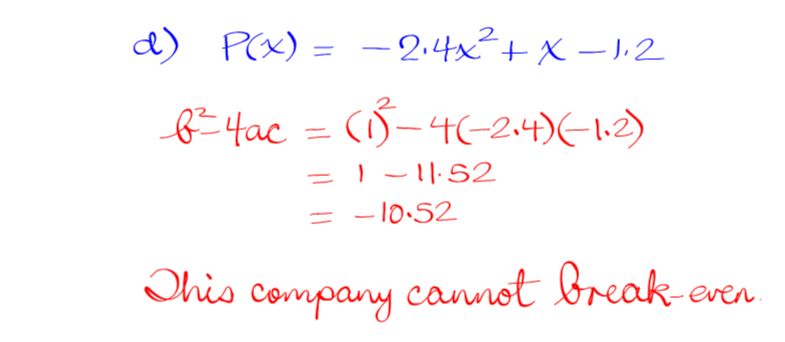 d) P(x) = -2.4x² + x - 1.2
b²-4ac = (1)² - 4(-2.4)(-1.2)
= 1 - 11.52
= -10.52
This company cannot break-even.